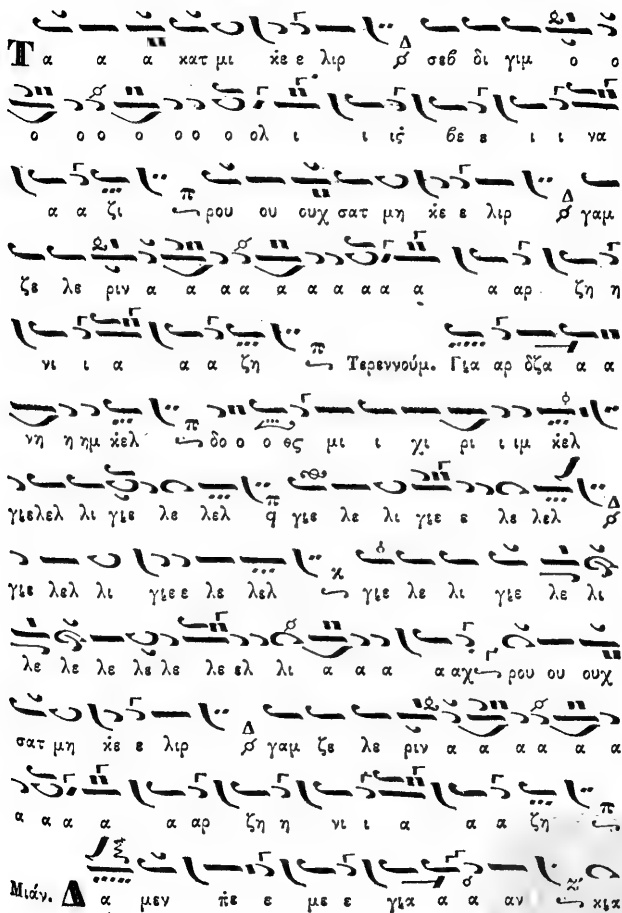 Τα α α κατ μι κ̇ε ε λιρ Δ σεβ δι γιμ ο ο
ο ο ο ο ο ο ο ολ ι ι ις̇ βε ε ι ι να
α α ζι π ρου ου ουχ σατ μη κ̇ε ε λιρ Δ γαμ
ζε λε ριν α α α α α α α α α α α αρ ζη η
νι ι α α α ζη π Τερεννούμ. Για αρ δζα α α
νη η ημ κ̇ελ π δο ο ο θς μι ι χι ρι ι ιμ κ̇ελ
γιελελ λι γιε λε λελ π q γιε λε λι γιε ε λε λελ Δ
γιε λελ λι γιε ε λε λελ κ γιε λε λι γιε λε λι
λε λε λε λε λε λε ελ λι α α α α αχ ρου ου ουχ
σατ μη κ̇ε ε λιρ Δ γαμ ζε λε ριν α α α α α α
α α α α α αρ ζη η νι ι α α α ζη π
Μιάν. Δα μεν π̇ε ε με ε για α α αν κια